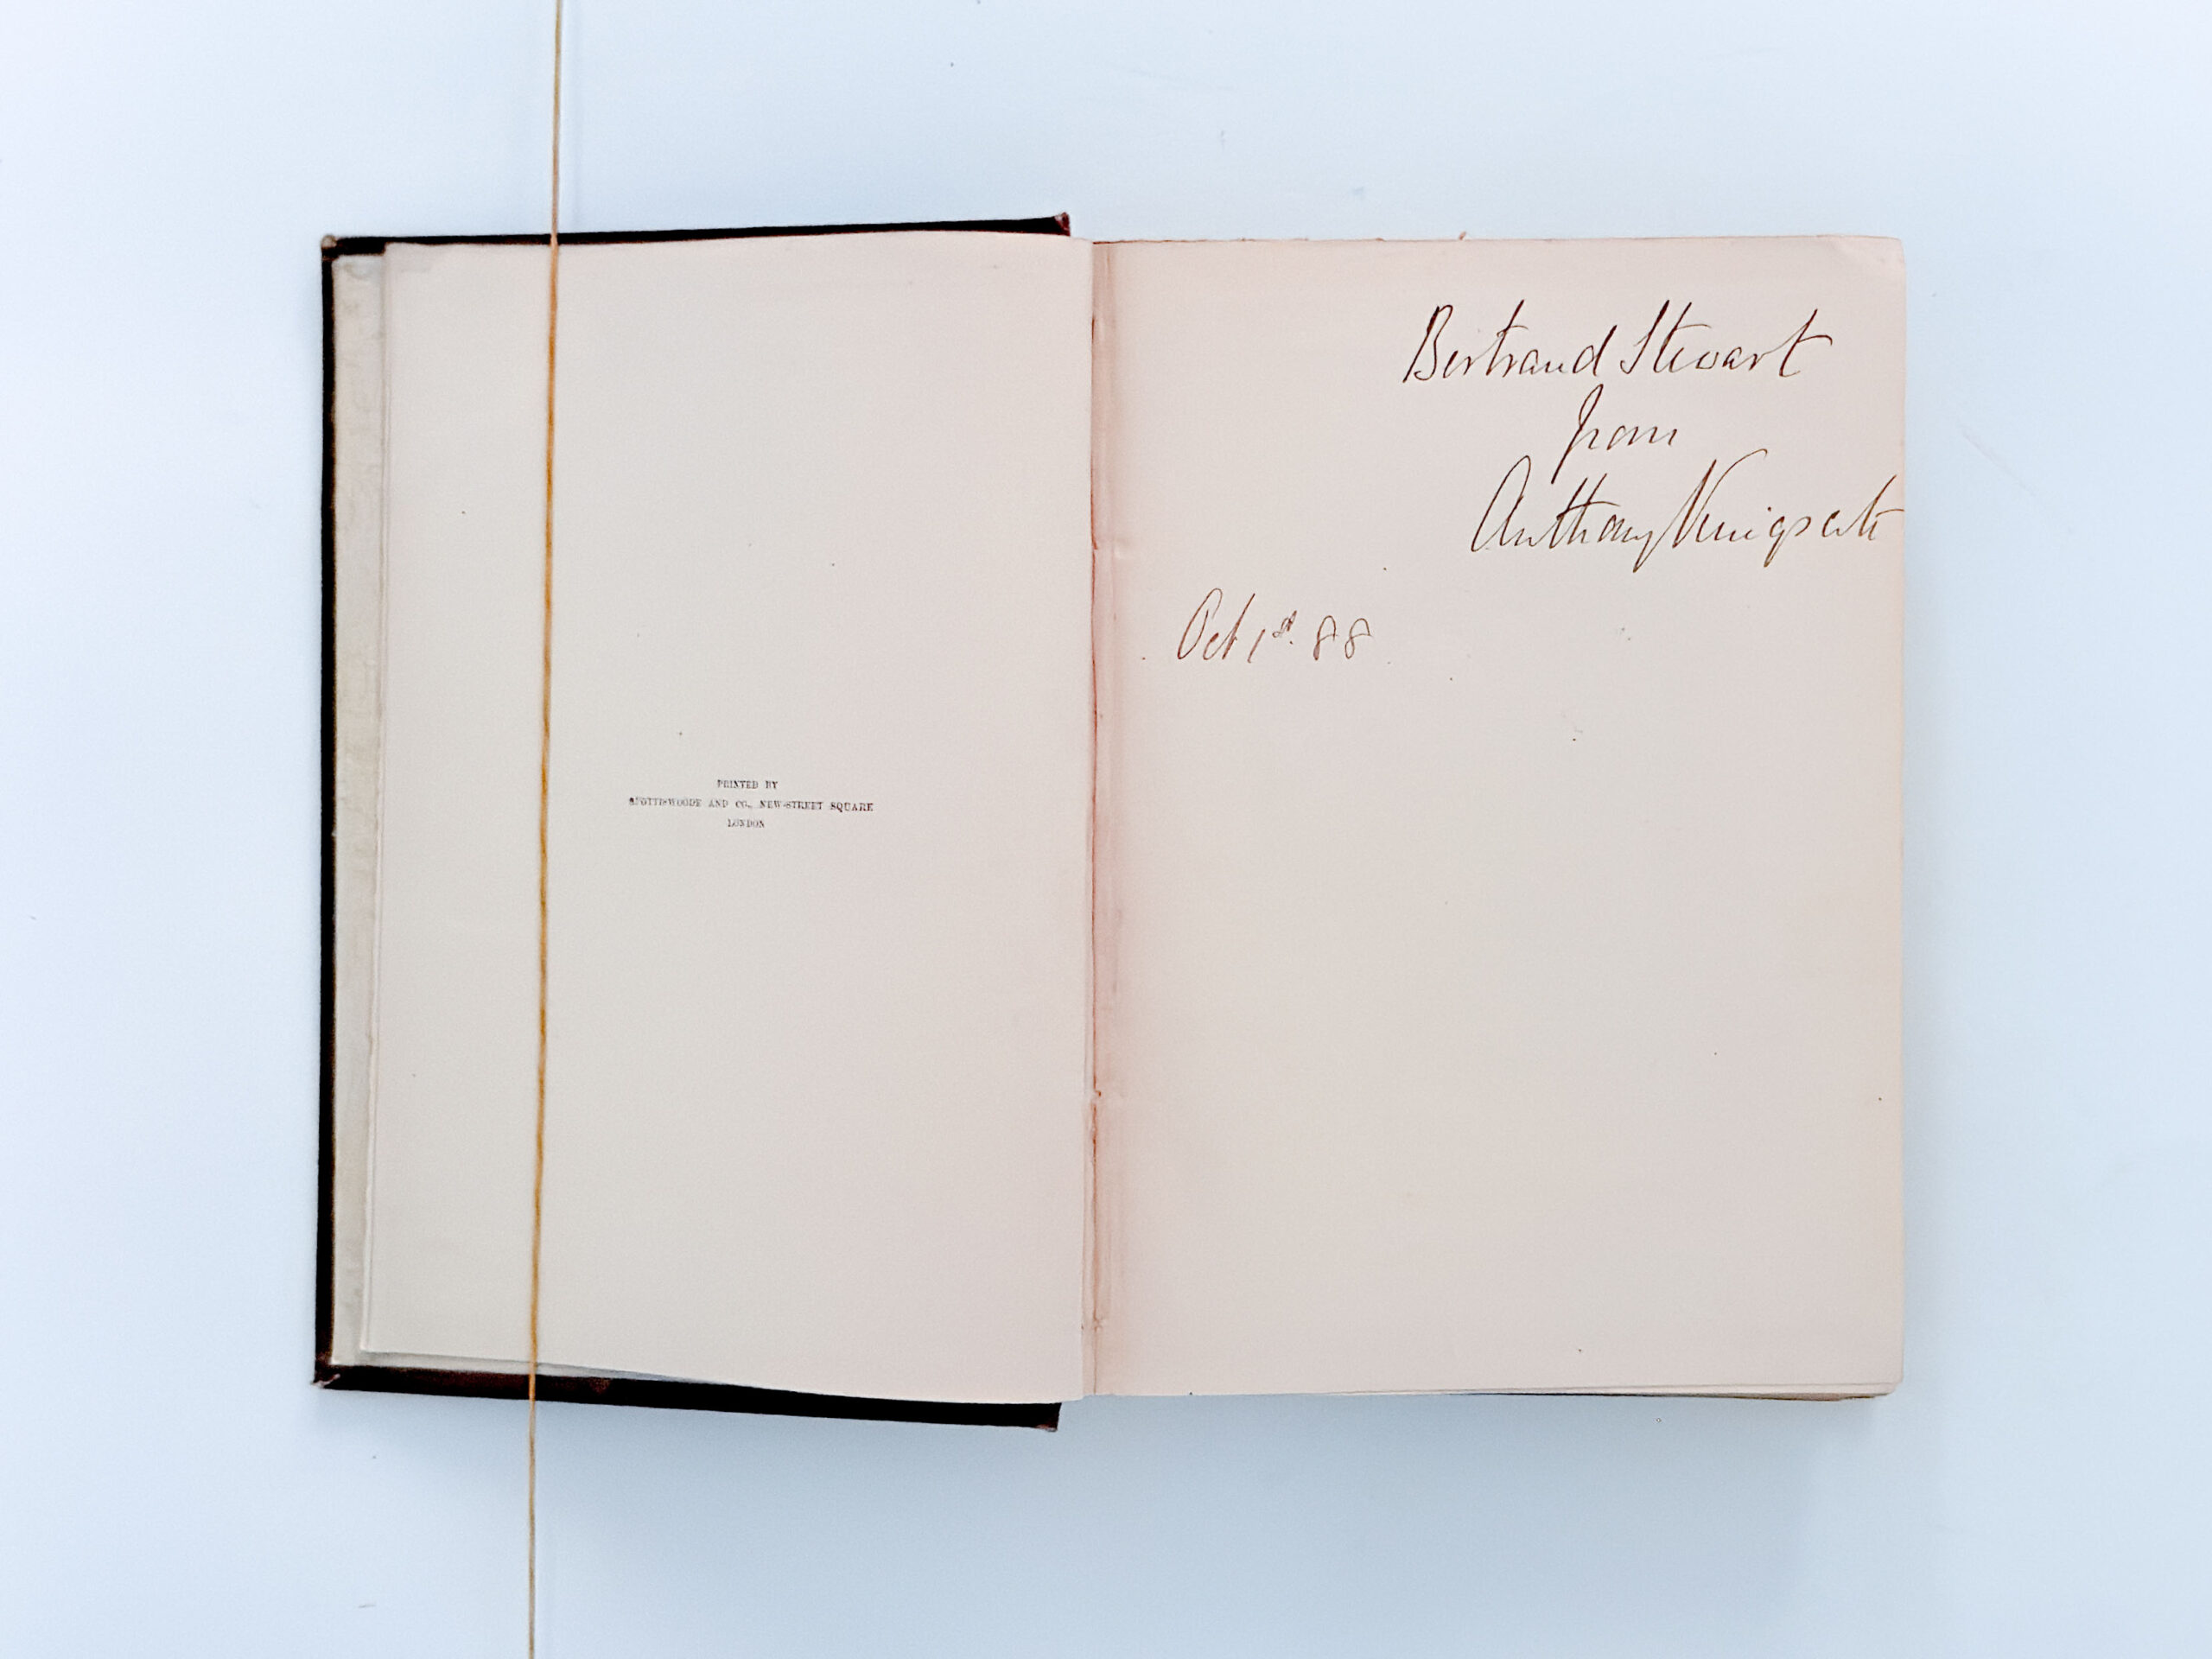 PRINTED BY
SPOTTISWOODE AND CO., NEW-STREET SQUARE
LONDON
Bertrand Stewart
from
Anthony
Oct 1st. 88